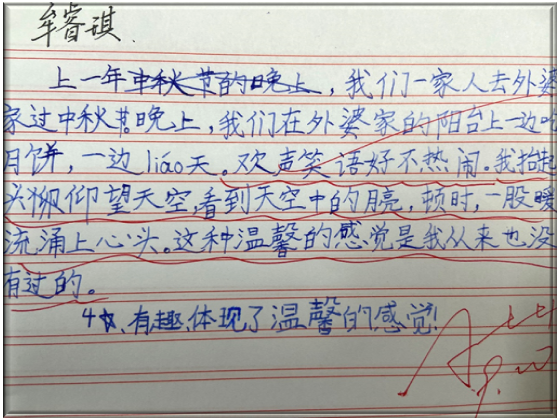 牟睿琪
上一年中秋节的晚上，我们一家人去外婆
家过中秋节。晚上，我们在外婆家的阳台上一边吃
月饼，一边liáo天。欢声笑语好不热闹。我抬起
头仰望天空，看到天空中的月亮，顿时，一股暖
流涌上心头。这种温馨的感觉是我从来也没
有过的。
有趣，体现了温馨的感觉！